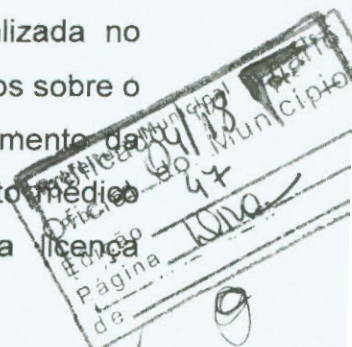 lizada no
os sobre o
mento da
to médico
a licença
Prefeitura Municipal
Diário
Oficial do Município
Edição 47
Página
de